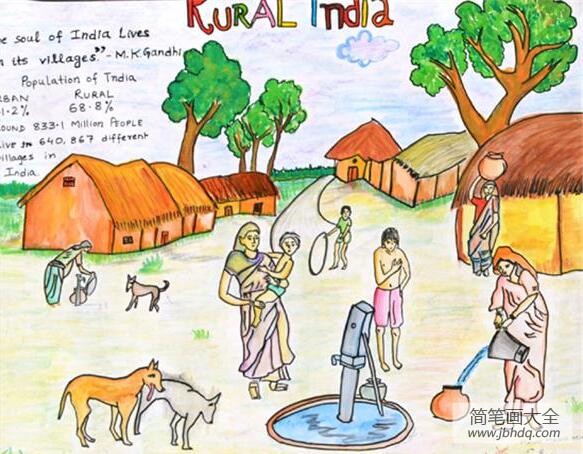 RURAL India
e soul of India Lives
n its villages." - M.K.Gandhi
Population of India
RBAN RURAL
1.2% 68.8%
OUND 833.1 Million PEOPLE
ive in 640,867 different
illages in
India.
简笔画大全
www.jbhdq.com